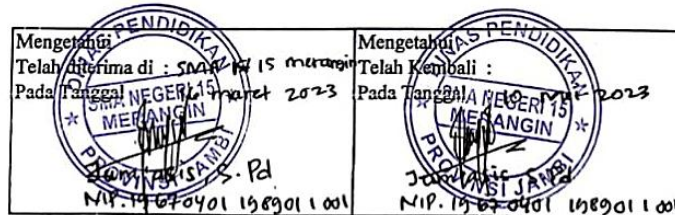 Mengetahui
Telah diterima di : SMA N 15 merangin
Pada Tanggal 16 maret 2023
DINAS PENDIDIKAN
SMA NEGERI 15
MERANGIN
PROVINSI JAMBI
S. Pd
NIP. 19670401 198901 1 001
Mengetahui
Telah Kembali :
Pada Tanggal 2023
DINAS PENDIDIKAN
SMA NEGERI 15
MERANGIN
PROVINSI JAMBI
S. Pd
NIP. 19670401 198901 1 001